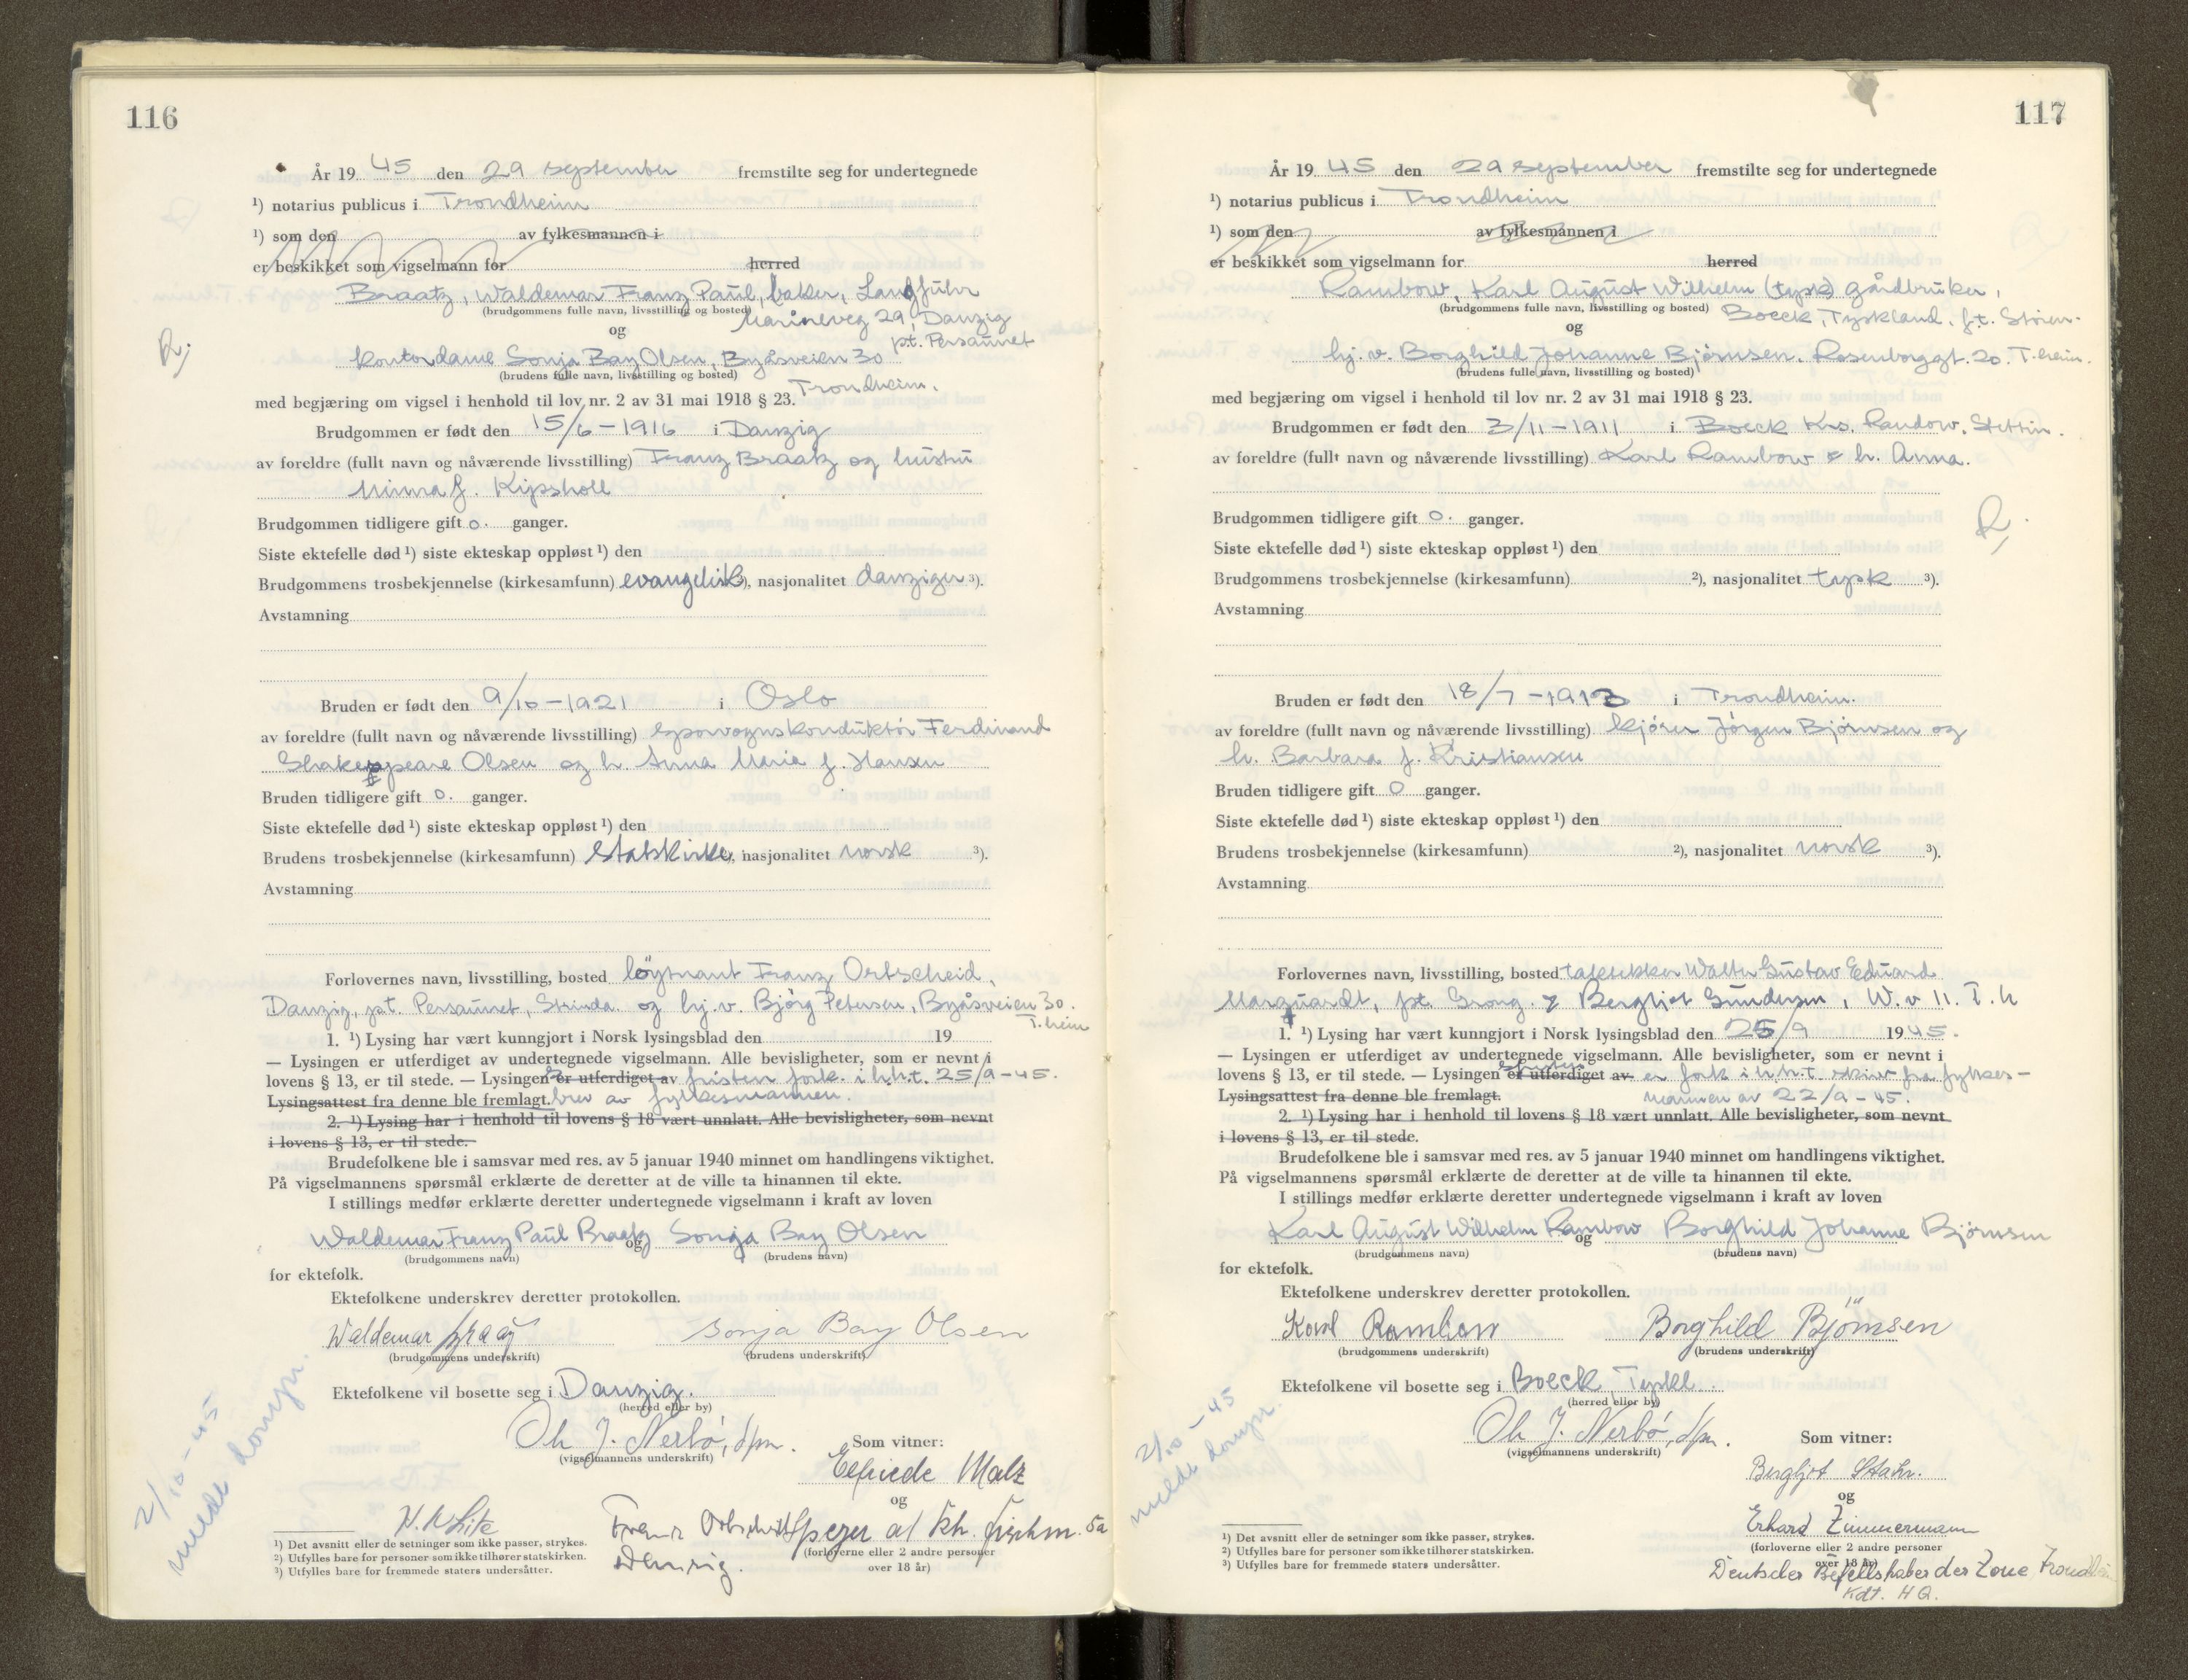 116
År 19 45 den 29 september fremstilte seg for undertegnede
¹) notarius publicus i Trondheim
¹) som den av fylkesmannen i
er beskikket som vigselmann for herred
Braatz, Waldemar Franz Paul, baker, Langfuhr
(brudgommens fulle navn, livsstilling og bosted)
Marineveg 29, Danzig
og
pt. Persaunet
kontordame Sonja Bay Olsen, Byåsveien 30
(brudens fulle navn, livsstilling og bosted)
Trondheim.
med begjæring om vigsel i henhold til lov nr. 2 av 31 mai 1918 § 23.
Brudgommen er født den 15/6-1916 i Danzig
av foreldre (fullt navn og nåværende livsstilling) Franz Braatz og hustru
Minna f. Kipsholl
Brudgommen tidligere gift 0. ganger.
Siste ektefelle død ¹) siste ekteskap oppløst ¹) den
Brudgommens trosbekjennelse (kirkesamfunn) evangelisk ), nasjonalitet danziger ³).
Avstamning
Bruden er født den 9/10-1921 i Oslo
av foreldre (fullt navn og nåværende livsstilling) sporvognskonduktör Ferdinand
Shakespeare Olsen og h. Anna Maria f. Hansen
Bruden tidligere gift 0. ganger.
Siste ektefelle død ¹) siste ekteskap oppløst ¹) den
Brudens trosbekjennelse (kirkesamfunn) Statskirke, nasjonalitet norsk ³).
Avstamning
Forlovernes navn, livsstilling, bosted löytnant Franz Ortscheid,
Danzig, pt. Persaunet, Strinda og hj.v. Bjørg Petersen, Byåsveien 30.
T.heim
1. ¹) Lysing har vært kunngjort i Norsk lysingsblad den 19
— Lysingen er utferdiget av undertegnede vigselmann. Alle bevisligheter, som er nevnt i
lovens § 13, er til stede. — Lysingen er utferdiget av fristen fork. i h.h.t. 25/9-45.
Lysingsattest fra denne ble fremlagt. brev av fylkesmannen.
2. ¹) Lysing har i henhold til lovens § 18 vært unnlatt. Alle bevisligheter, som nevnt
i lovens § 13, er til stede.
Brudefolkene ble i samsvar med res. av 5 januar 1940 minnet om handlingens viktighet.
På vigselmannens spørsmål erklærte de deretter at de ville ta hinannen til ekte.
I stillings medfør erklærte deretter undertegnede vigselmann i kraft av loven
Waldemar Franz Paul Braatz og Sonja Bay Olsen
(brudgommens navn) (brudens navn)
for ektefolk.
Ektefolkene underskrev deretter protokollen.
Waldemar Braatz Sonja Bay Olsen
(brudgommens underskrift) (brudens underskrift)
Ektefolkene vil bosette seg i Danzig.
(herred eller by)
Oh J. Nerbö, dfm.
(vigselmannens underskrift)
Som vitner:
Elfriede Malz
og
(forloverne eller 2 andre personer
over 18 år)
2/10-45
¹) Det avsnitt eller de setninger som ikke passer, strykes.
²) Utfylles bare for personer som ikke tilhører statskirken.
³) Utfylles bare for fremmede staters undersåtter.
117
År 19 45 den 29 september fremstilte seg for undertegnede
¹) notarius publicus i Trondheim
¹) som den av fylkesmannen i
er beskikket som vigselmann for herred
Rambow, Karl August Wilhelm (tysk) gårdbruker,
(brudgommens fulle navn, livsstilling og bosted) Boeck, Tyskland, p.t. Støren.
og
hj. v. Borghild Johanne Bjørnsen, Rosenborggt. 20. T.heim.
(brudens fulle navn, livsstilling og bosted)
med begjæring om vigsel i henhold til lov nr. 2 av 31 mai 1918 § 23.
Brudgommen er født den 3/11-1911 i Boeck Krs. Randow, Stettin.
av foreldre (fullt navn og nåværende livsstilling) Karl Rambow & h. Anna.
Brudgommen tidligere gift 0. ganger.
Siste ektefelle død ¹) siste ekteskap oppløst ¹) den
Brudgommens trosbekjennelse (kirkesamfunn) ²), nasjonalitet tysk ³).
Avstamning
Bruden er født den 18/7-1913 i Trondheim.
av foreldre (fullt navn og nåværende livsstilling) kjører Jörgen Bjørnsen og
h. Barbara f. Kristiansen
Bruden tidligere gift 0 ganger.
Siste ektefelle død ¹) siste ekteskap oppløst ¹) den
Brudens trosbekjennelse (kirkesamfunn) ²), nasjonalitet norsk ³).
Avstamning
Forlovernes navn, livsstilling, bosted Walter Gustav Eduard
Marquardt, pt. Grong. & Bergljot Gundersen, W. v 11. T.h
1. ¹) Lysing har vært kunngjort i Norsk lysingsblad den 25/9 1945.
— Lysingen er utferdiget av undertegnede vigselmann. Alle bevisligheter, som er nevnt i
lovens § 13, er til stede. — Lysingen er utferdiget av fristen er fork i h.h.t. skriv fra fylkes-
Lysingsattest fra denne ble fremlagt. mannen av 22/9-45.
2. ¹) Lysing har i henhold til lovens § 18 vært unnlatt. Alle bevisligheter, som nevnt
i lovens § 13, er til stede.
Brudefolkene ble i samsvar med res. av 5 januar 1940 minnet om handlingens viktighet.
På vigselmannens spørsmål erklærte de deretter at de ville ta hinannen til ekte.
I stillings medfør erklærte deretter undertegnede vigselmann i kraft av loven
Karl August Wilhelm Rambow og Borghild Johanne Bjørnsen
(brudgommens navn) (brudens navn)
for ektefolk.
Ektefolkene underskrev deretter protokollen.
Karl Rambow Borghild Björnsen
(brudgommens underskrift) (brudens underskrift)
Ektefolkene vil bosette seg i Boeck, Tyskl.
(herred eller by)
Oh J. Nerbö, dfm.
(vigselmannens underskrift)
Som vitner:
Bergljot Stahr.
og
Erhard Zimmermann
(forloverne eller 2 andre personer
over 18 år)
Deutscher Befehlshaber der Zone Trondheim
Kdt. HQ.
2/10-45
¹) Det avsnitt eller de setninger som ikke passer, strykes.
²) Utfylles bare for personer som ikke tilhører statskirken.
³) Utfylles bare for fremmede staters undersåtter.